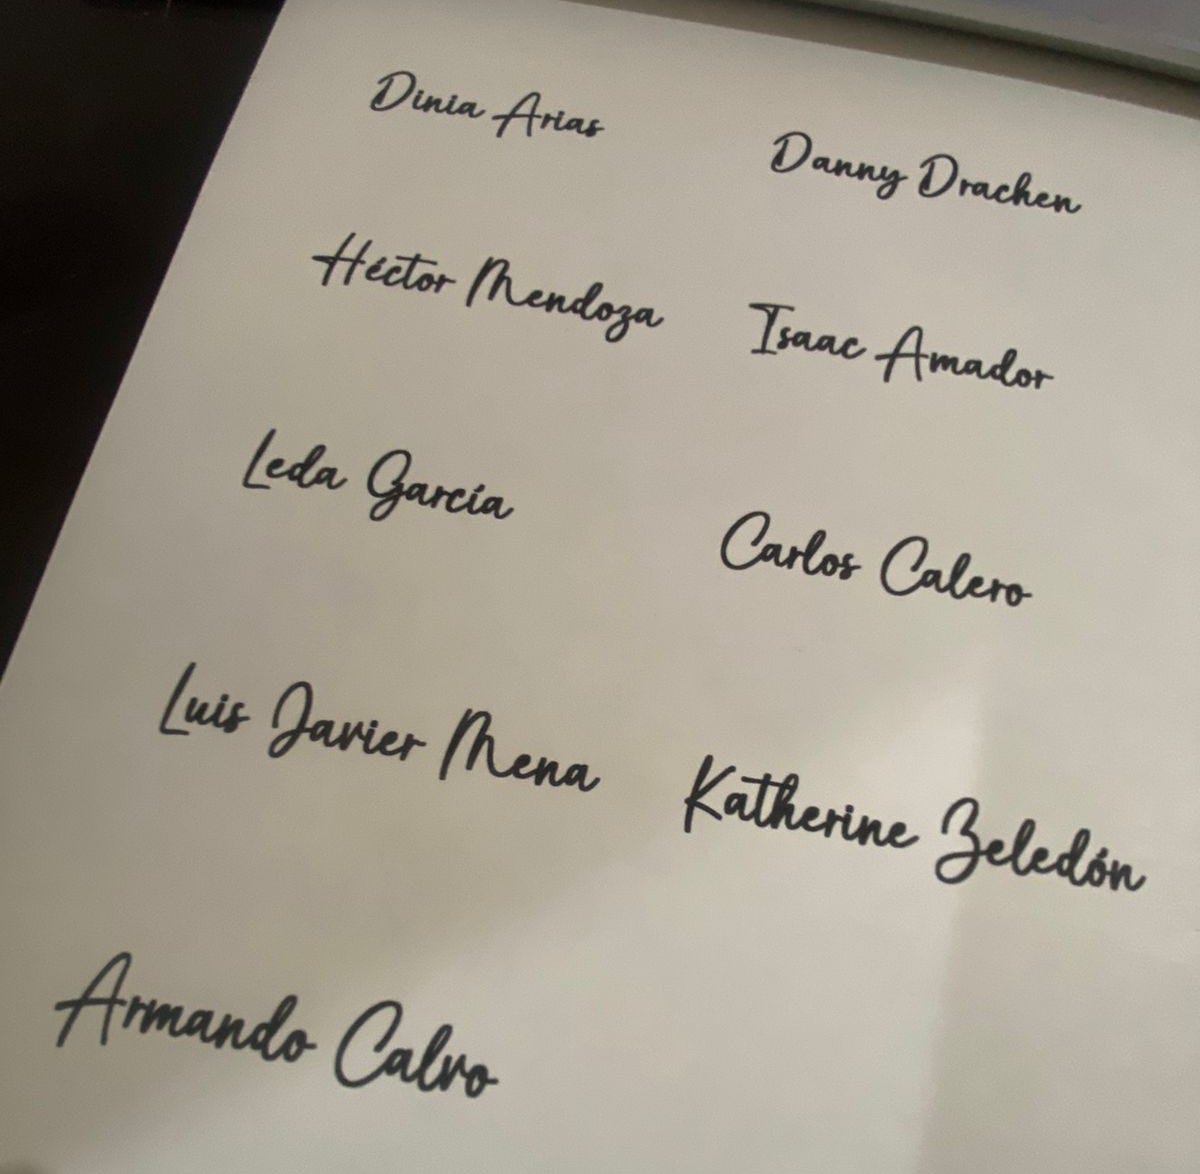 Dinia Arias
Danny Drachen
Héctor Mendoza
Isaac Amador
Leda García
Carlos Calero
Luis Javier Mena
Katherine Zeledón
Armando Calvo